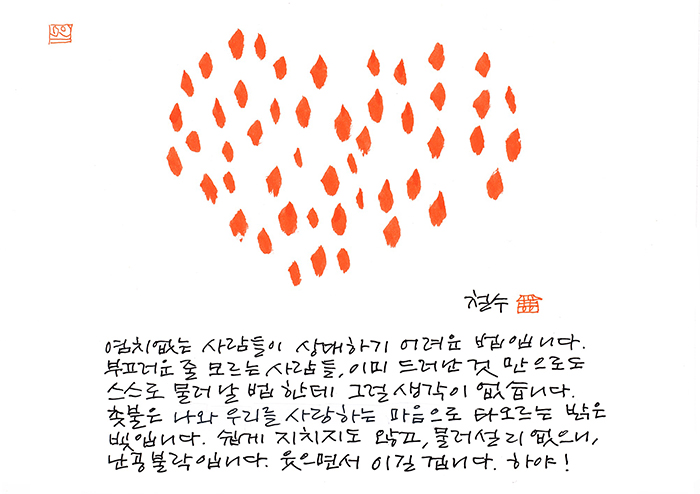 철수
염치없는 사람들이 상대하기 어려운 법입니다.
부끄러운 줄 모르는 사람들, 이미 드러난 것 만으로도
스스로 물러날 법 한데 그럴 생각이 없습니다.
촛불은 나와 우리를 사랑하는 마음으로 타오르는 밝은
빛입니다. 쉽게 지치지도 않고, 물러설리 없으니,
난공불락입니다. 웃으면서 이길 겁니다. 하야!